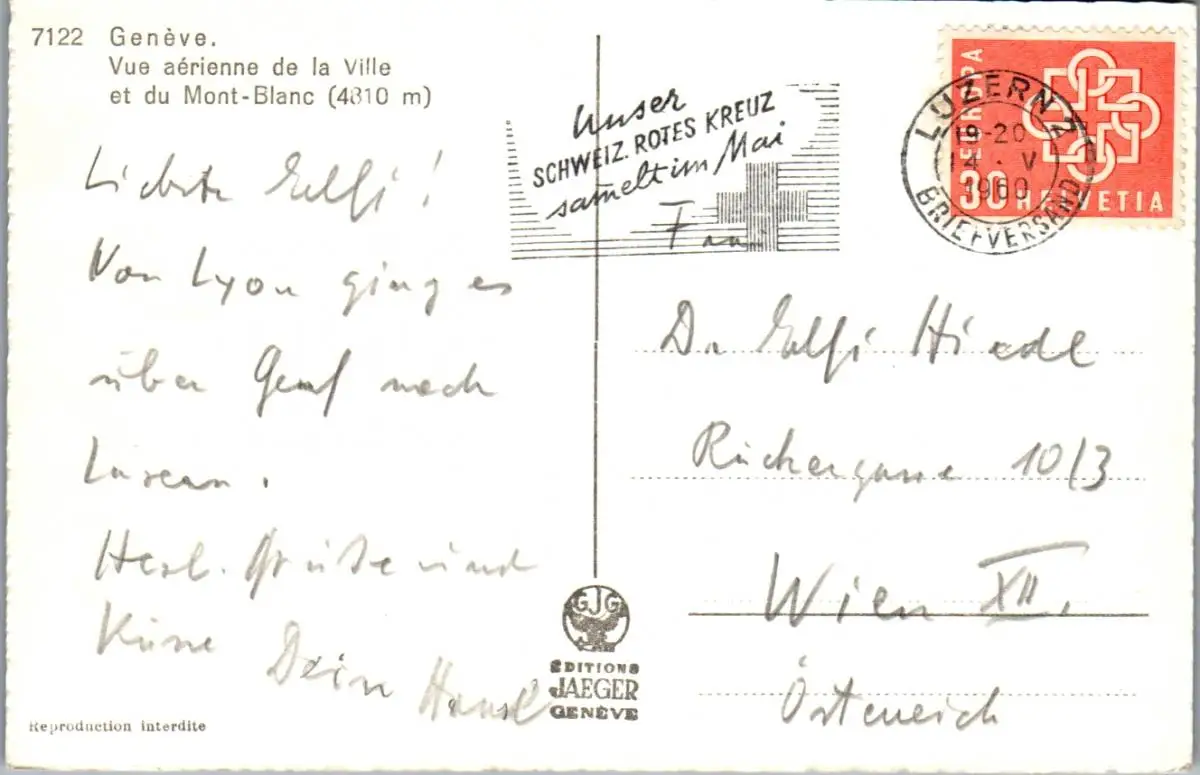 7122 Genève.
Vue aérienne de la Ville
et du Mont-Blanc (4810 m)
Liebste Elfi!
Von Lyon ging es
über Genf nach
Luzern.
Herzl. Grüße und
Küsse
Dein Hansl
Reproduction interdite
Unser
SCHWEIZ. ROTES KREUZ
samelt im Mai
GJG
ÉDITIONS
JAEGER
GENÈVE
EUROPA
30 HELVETIA
LUZERN
19-20
14. V
1960
BRIEFVERSAND
Dr Elfi
Wien XII.
Österreich
10/3